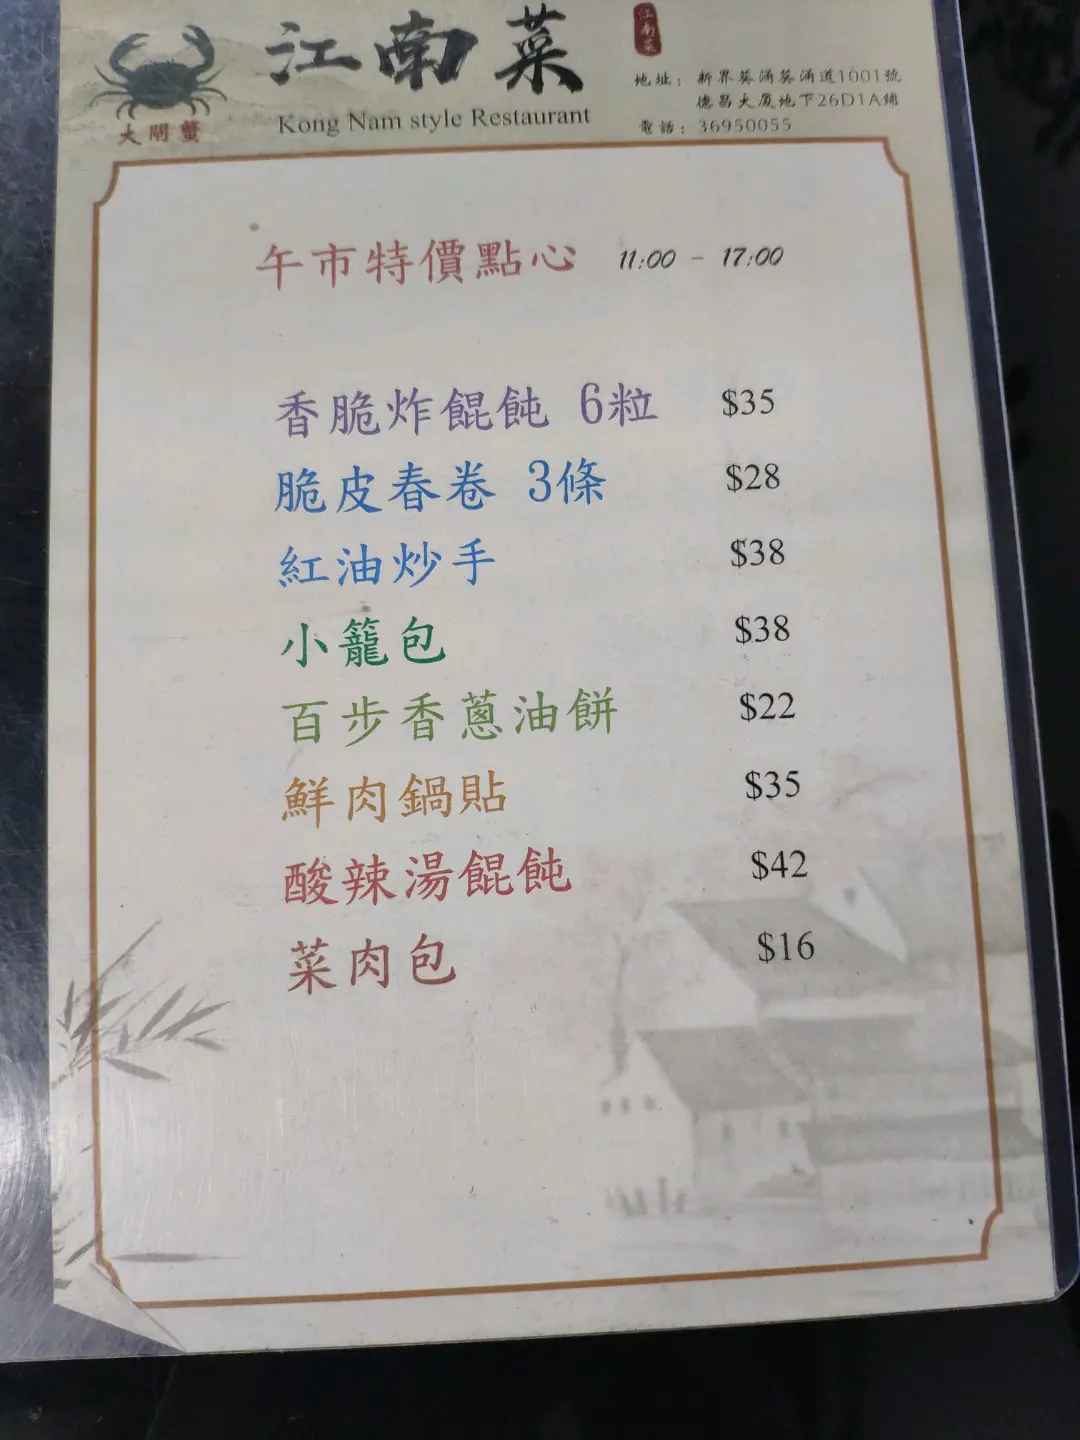 江南菜
Kong Nam style Restaurant
大閘蟹
江南菜
地址：新界葵涌葵涌道1001號
德昌大厦地下26D1A鋪
電話：36950055
午市特價點心 11:00 - 17:00
香脆炸餛飩 6粒 $35
脆皮春卷 3條 $28
紅油炒手 $38
小籠包 $38
百步香蔥油餅 $22
鮮肉鍋貼 $35
酸辣湯餛飩 $42
菜肉包 $16